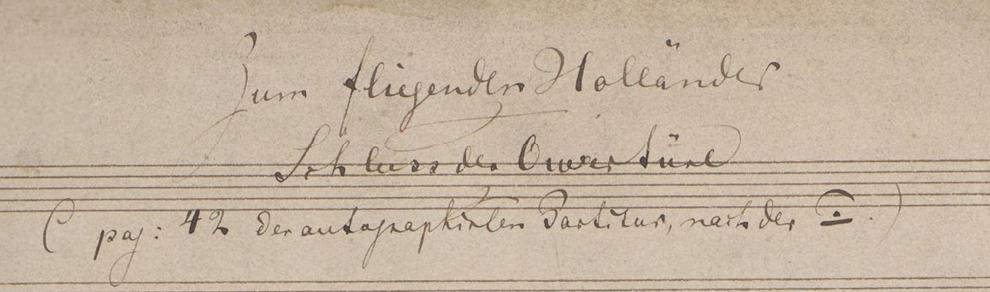 Zum fliegenden Holländer
Schluss der Ouvertüre
( pag: 42 der autographirten Partitur, nach der 𝄐. )